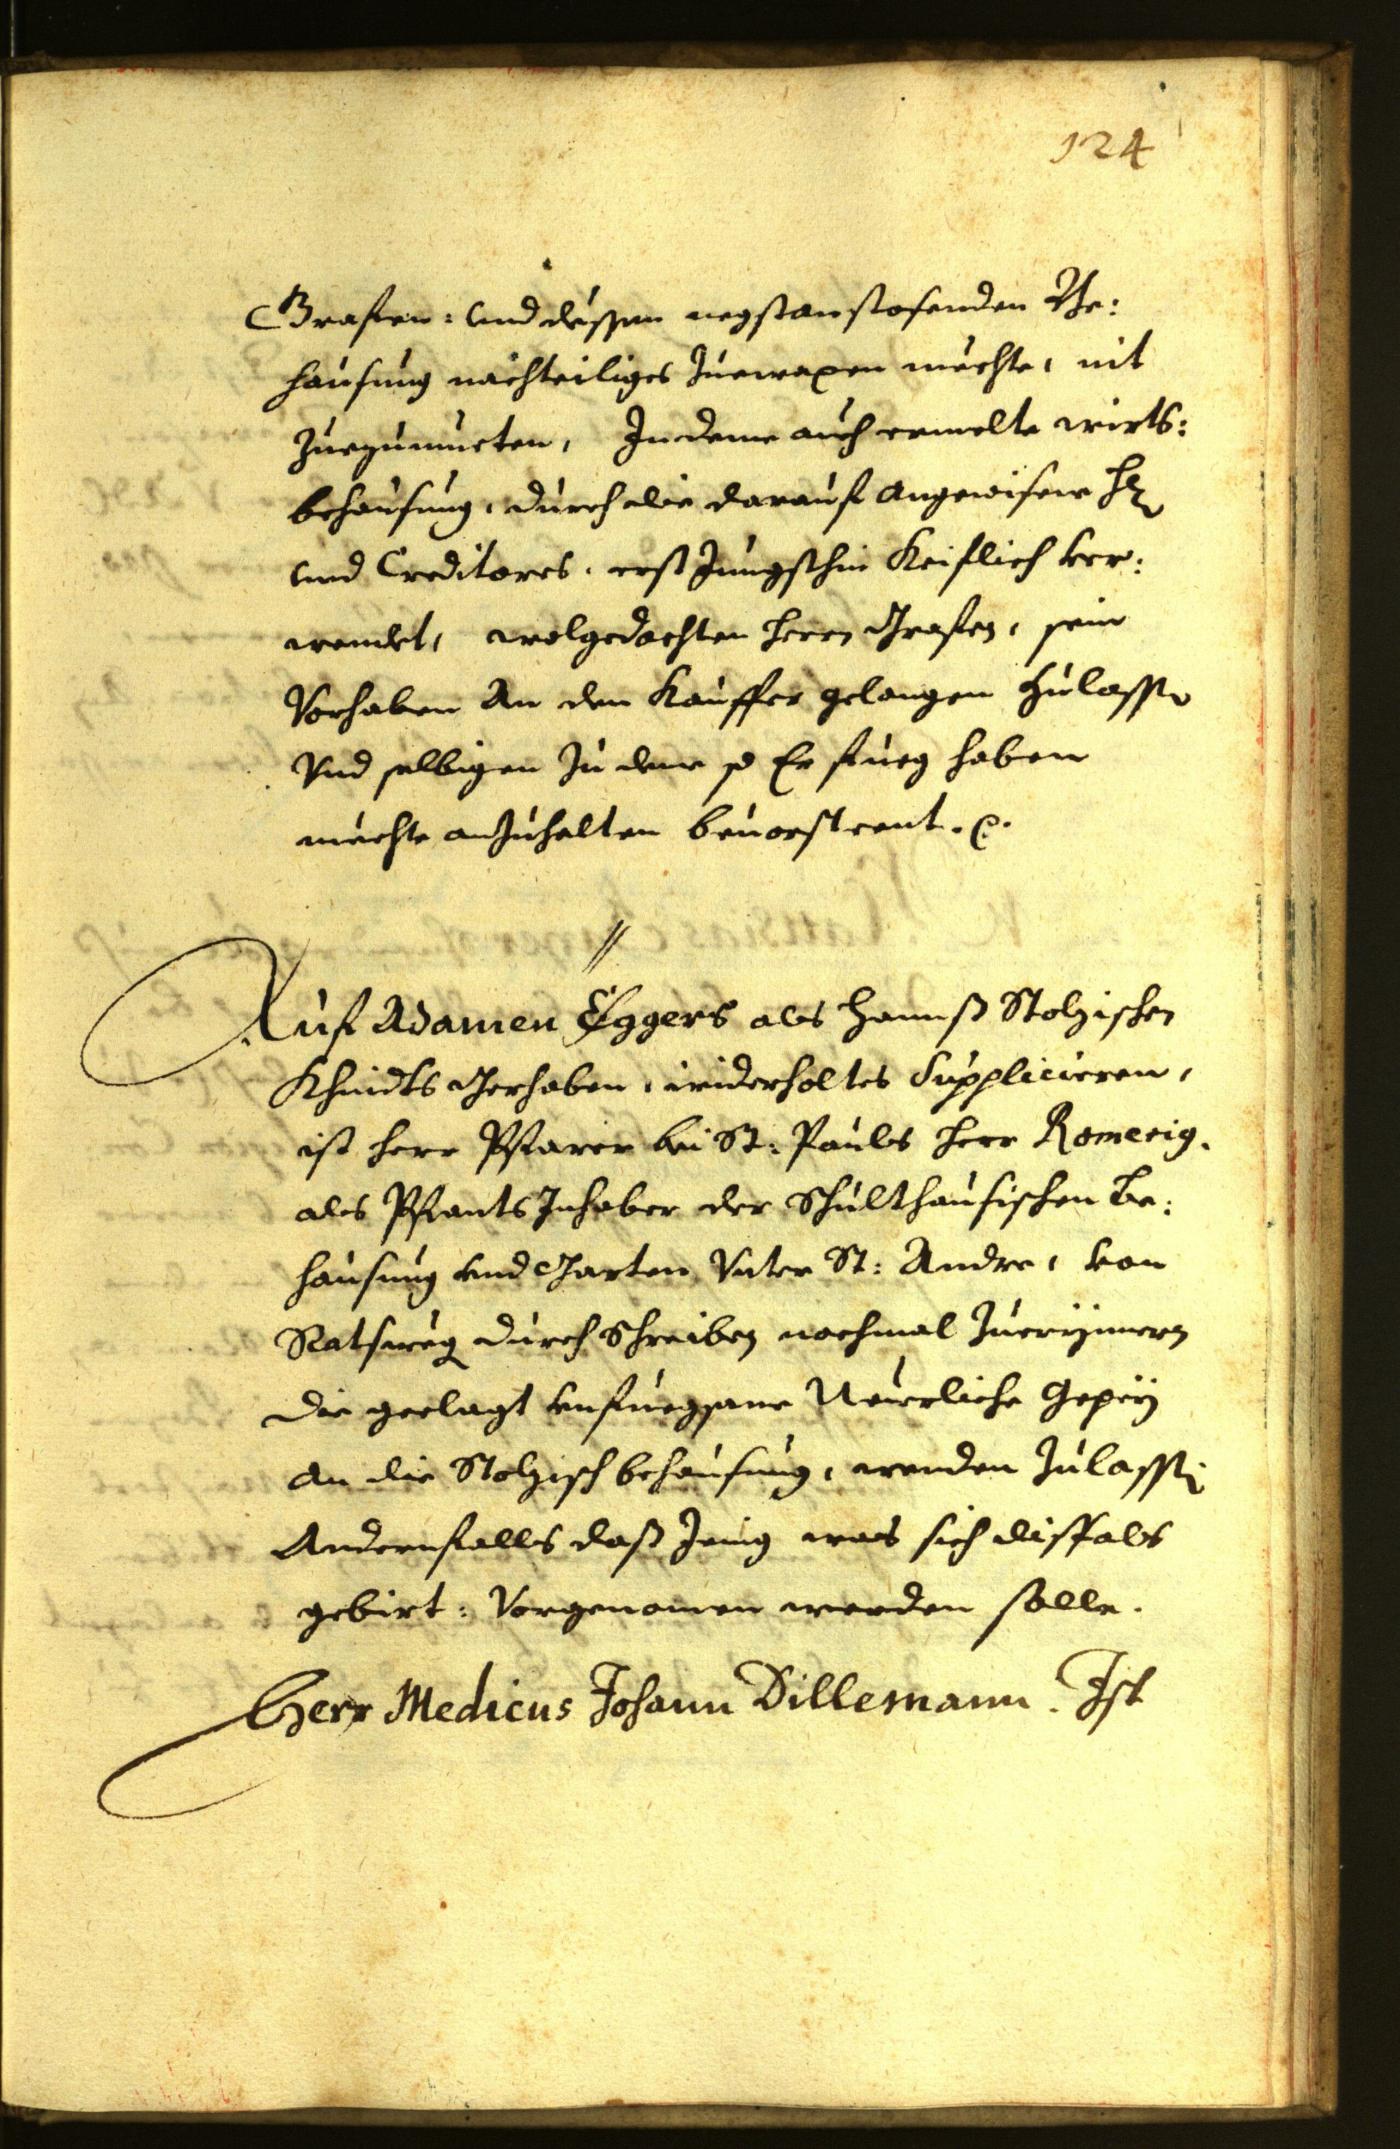 124
Grafen: und dessen negstanstosenden Be:
hausung nachteiliges Zuewaxen mechte, nit
Zuezumueten, Indeme auch ermelte wirts:
behausung, durch die darauf angewisene
und Creditores, erst Jungsthin Keiflich ver:
wendt, wolgedachten Herrn Grafen, sein
Vorhaben An den Kauffer gelangen Zulassen
Vnd selbigen Zu deme so Er fueg haben
mechte anzuhalten beuorsteent.
Auf Adamen Eggers als Hannß Stolzischen
Khindts Gerhaben, widerholtes Supplicieren,
ist Herr Pfarer bei St: Pauls Herr Romerig.
als Pfants Inhaber der Schulthausischen Be:
hausung vnd Garten Vnter St: Andre, von
Ratsweg durch Schreiben nochmal Zueryinnern
die geclagt vnfuegsame Neuerliche Gepey
an die Stolzisch behausung, wenden Zulassen
Andernfalls daß Jenig was sich disfals
gebirt: Vorgenomen werden solle.
Herr Medicus Johann Dillemann. Ist